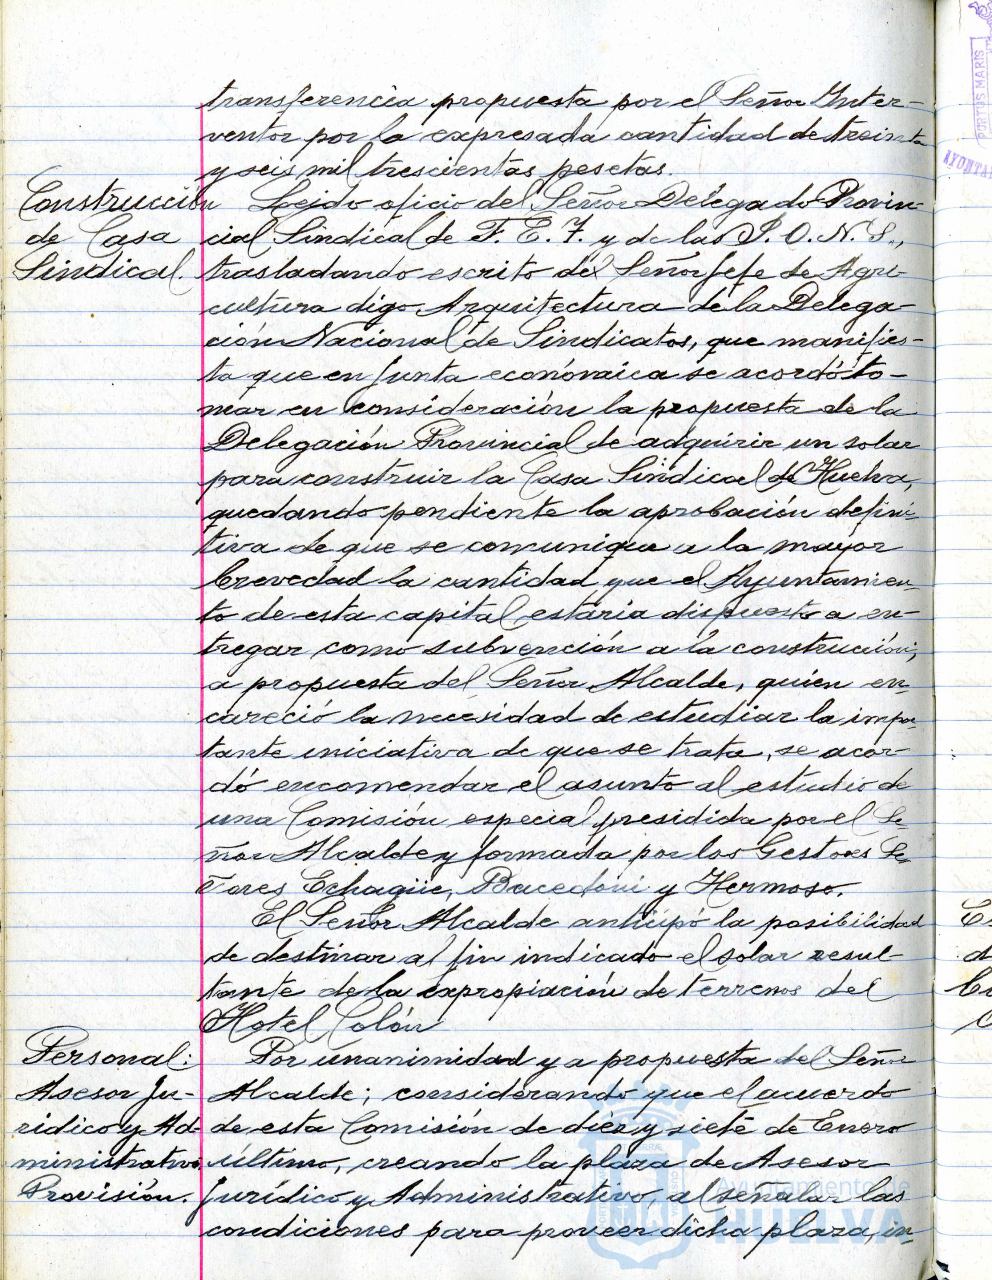 transferencia propuesta por el Señor Inter-
ventor por la expresada cantidad de treinta
y seis mil trescientas pesetas.
Construcción
de Casa
Sindical.
Leido oficio del Señor Delegado Provin-
cial Sindical de F. E. T. y de las J. O. N. S.,
trasladando escrito del Señor Jefe de Agri-
cultura digo Arquitectura de la Delega-
ción Nacional de Sindicatos, que manifies-
ta que en Junta económica se acordó to-
mar en consideración la propuesta de la
Delegación Provincial de adquirir un solar
para construir la Casa Sindical de Huelva,
quedando pendiente la aprobación defini-
tiva de que se comunique a la mayor
brevedad la cantidad que el Ayuntamien-
to de esta capital estaria dispuesto a en-
tregar como subvención a la construcción;
a propuesta del Señor Alcalde, quien en-
careció la necesidad de estudiar la impor-
tante iniciativa de que se trata, se acor-
dó encomendar el asunto al estudio de
una Comisión especial presidida por el Se-
ñor Alcalde y formada por los Gestores Se-
ñores Echagüe, y Hermoso.
El Señor Alcalde anticipó la posibilidad
de destinar al fin indicado el solar resul-
tante de la expropiación de terrenos del
Hotel Colón
Personal:
Asesor Ju-
ridico y Ad-
ministrativo.
Provisión.
Por unanimidad y a propuesta del Señor
Alcalde; considerando que el acuerdo
de esta Comisión de diez y siete de Enero
último, creando la plaza de Asesor
Jurídico y Administrativo, al señalar las
condiciones para proveer dicha plaza, in-
Ayuntamiento de
HUELVA
PORTUS MARIS